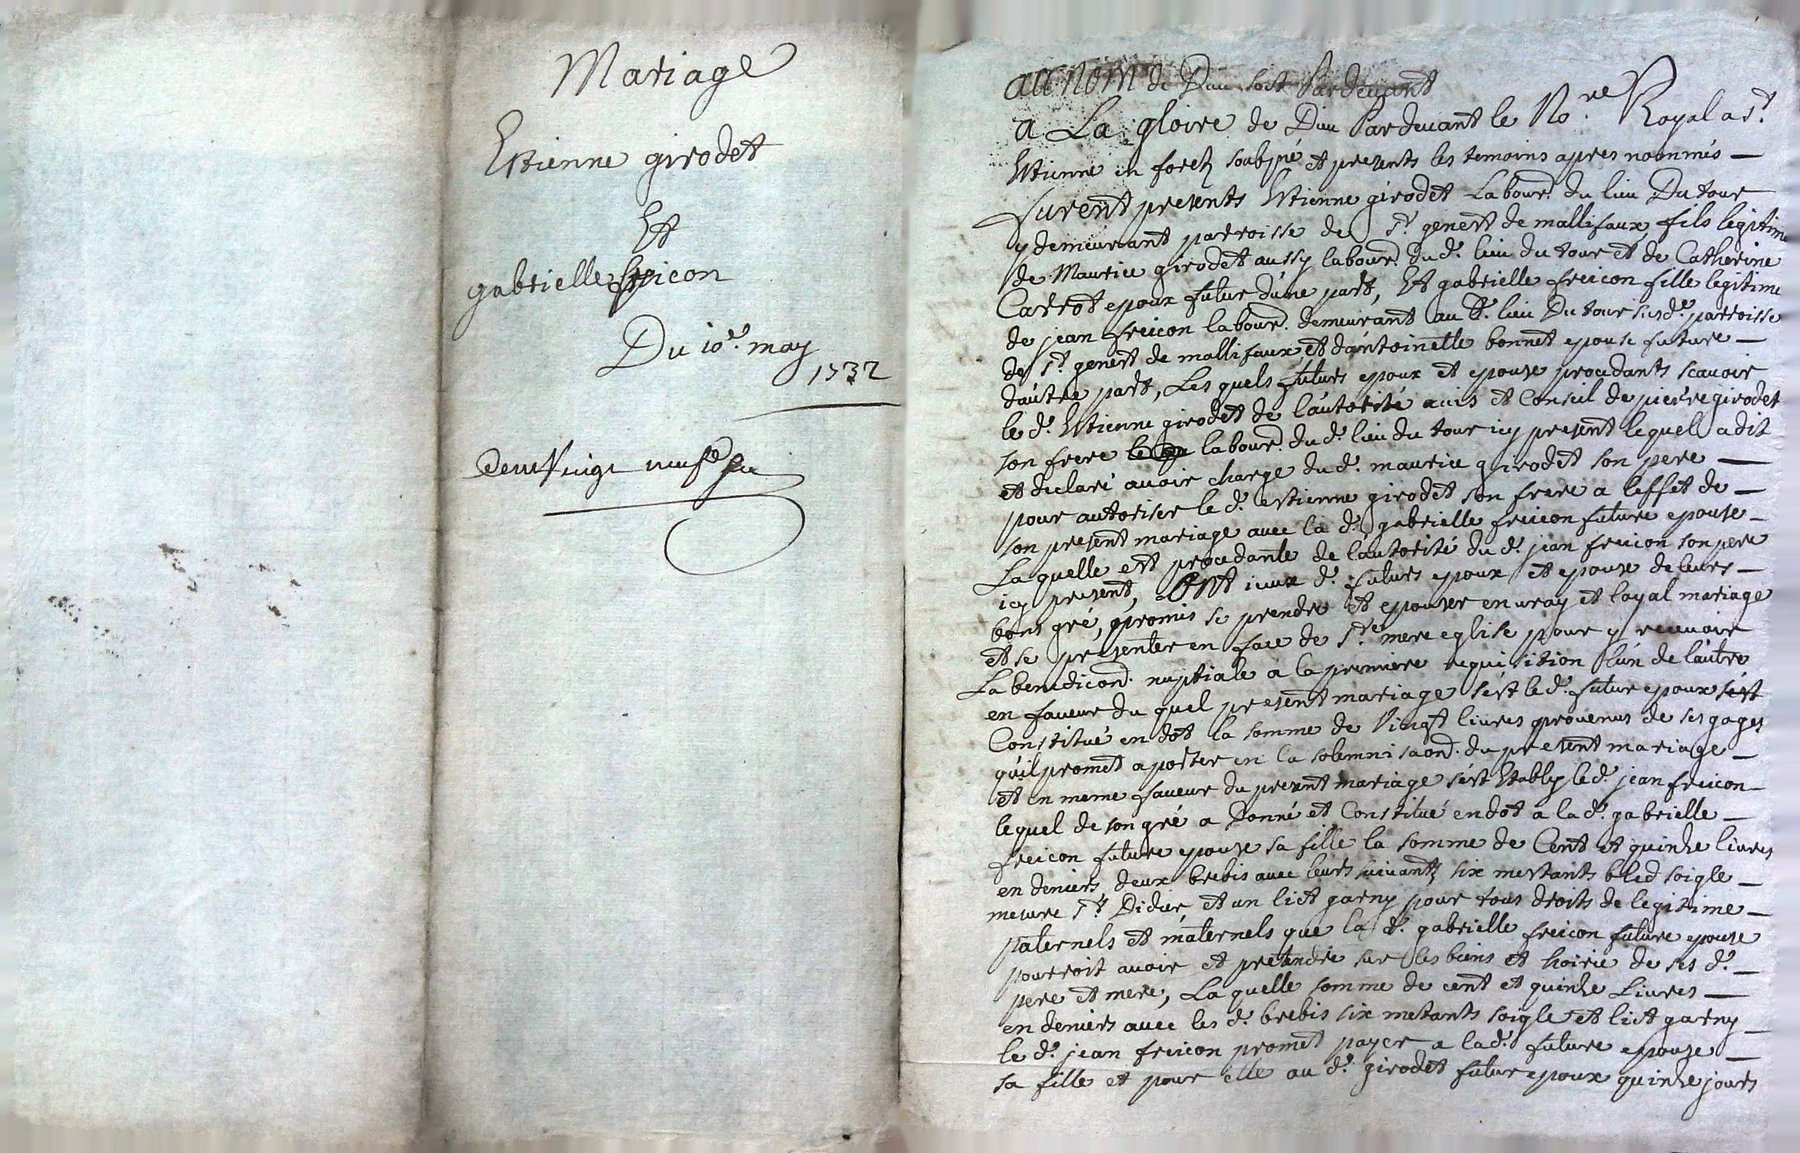 Mariage
Estienne girodet
Et
gabrielle freicon
Du 10e. may
1732
au nom de Dieu soit Pardevant
a La gloire de Dieu Pardevant le Nore. Royal a St.
Estienne en forez soubsné et presents les temoins apres nommés —
furent presents Estienne girodet Labourr. du lieu Du tour
y demeurant parroisse de St. genest de mallifaux, fils legitime
de Maurice girodet aussy labourr. dud. lieu du tour et de Catherine
Carrot epoux futur dune part, Et gabrielle freicon fille legitime
de jean freicon labourr. demeurant aud. lieu Du tour susd. parroisse
de St. genest de mallifaux, et dantoinette bonnet epouse future —
dautre part, Les quels futurs epoux et epouse procedants scavoir
le d. Estienne girodet de l'autorité avis et Conseil de pierre girodet
son frere labourr. dud. lieu du tour icy present lequel a dit
et declaré avoir charge dud. maurice girodet son pere —
pour autoriser le d. estienne girodet son frere a leffet de —
son present mariage avec la d. gabrielle freicon future epouse —
La quelle est procedante de l'autorité du d. jean freicon son pere
icy present, Ont iceux d. futurs epoux et epouse de leurs —
bons gré, promis se prendre et epouser en vray et loyal mariage
et se presenter en face de Ste. mere eglise pour y recevoir
La benediction. nuptiale a la premiere requisition l'un de l'autre
en faveur du quel present mariage s'est le d. futur epoux s'est
Constitué en dot la somme de Vingt livres provenus de ses gages
qu'il promet aporter en la solemnisaon. du present mariage —
et en meme faveur du present mariage s'est Etably le d. jean freicon —
lequel de son gré a Donné et Constitué en dot a la d. gabrielle —
freicon future epouse sa fille la somme de Cent et quinze livres
en deniers, deux brebis avec leurs suivants, six mestants bled soigle —
mesure St. Didier, et un lict garny pour tous droits de legitime —
paternels et maternels que la d. gabrielle freicon future epouse
pourroit avoir et pretendre sur les biens et hoirie de ses d. —
pere et mere, La quelle somme de cent et quinze Livres —
en deniers avec les d. brebis six metants soigle et lict garny —
le d. jean freicon promet payer a la d. future epouse —
sa fille et pour elle au d. girodet futur epoux quinze jours